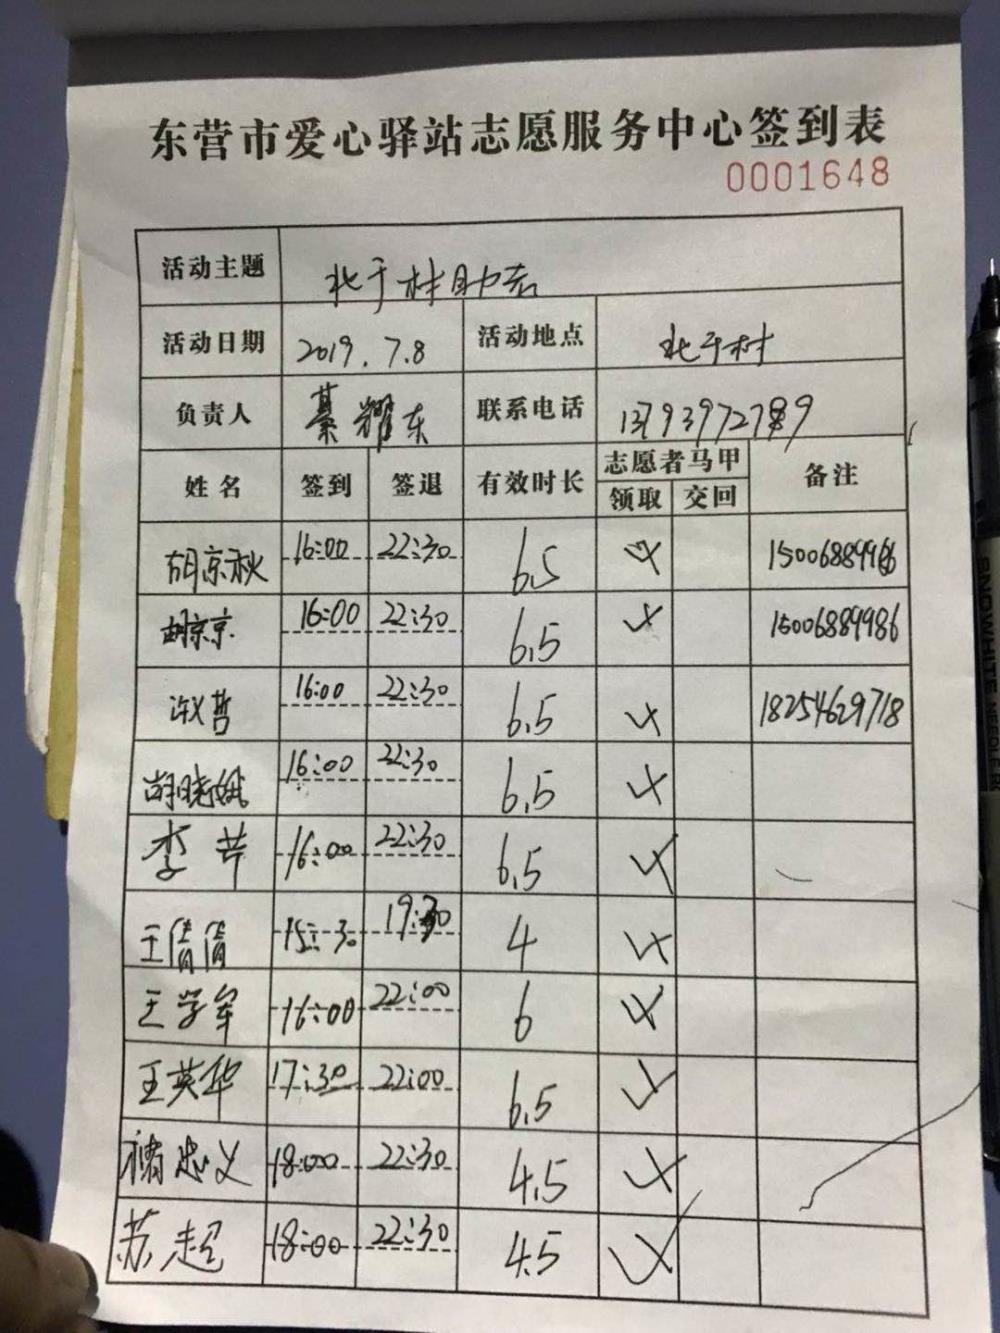 东营市爱心驿站志愿服务中心签到表
0001648
活动主题 北于村助老
活动日期 2019.7.8 活动地点 北于村
负责人 綦耀东 联系电话
姓名 签到 签退 有效时长 志愿者马甲 备注
领取 交回
胡京秋 16:00 22:30 6.5 15006889966
胡京京 16:00 22:30 6.5 15006889986
许哲 16:00 22:30 6.5 18254629718
胡晓娥 16:00 22:30 6.5
李芹 16:00 22:30 6.5
王倩倩 15:30 19:30 4
王学军 16:00 22:00 6
王英华 17:30 22:00 6.5
褚忠义 18:00 22:30 4.5
苏超 18:00 22:30 4.5
SNOWHITE